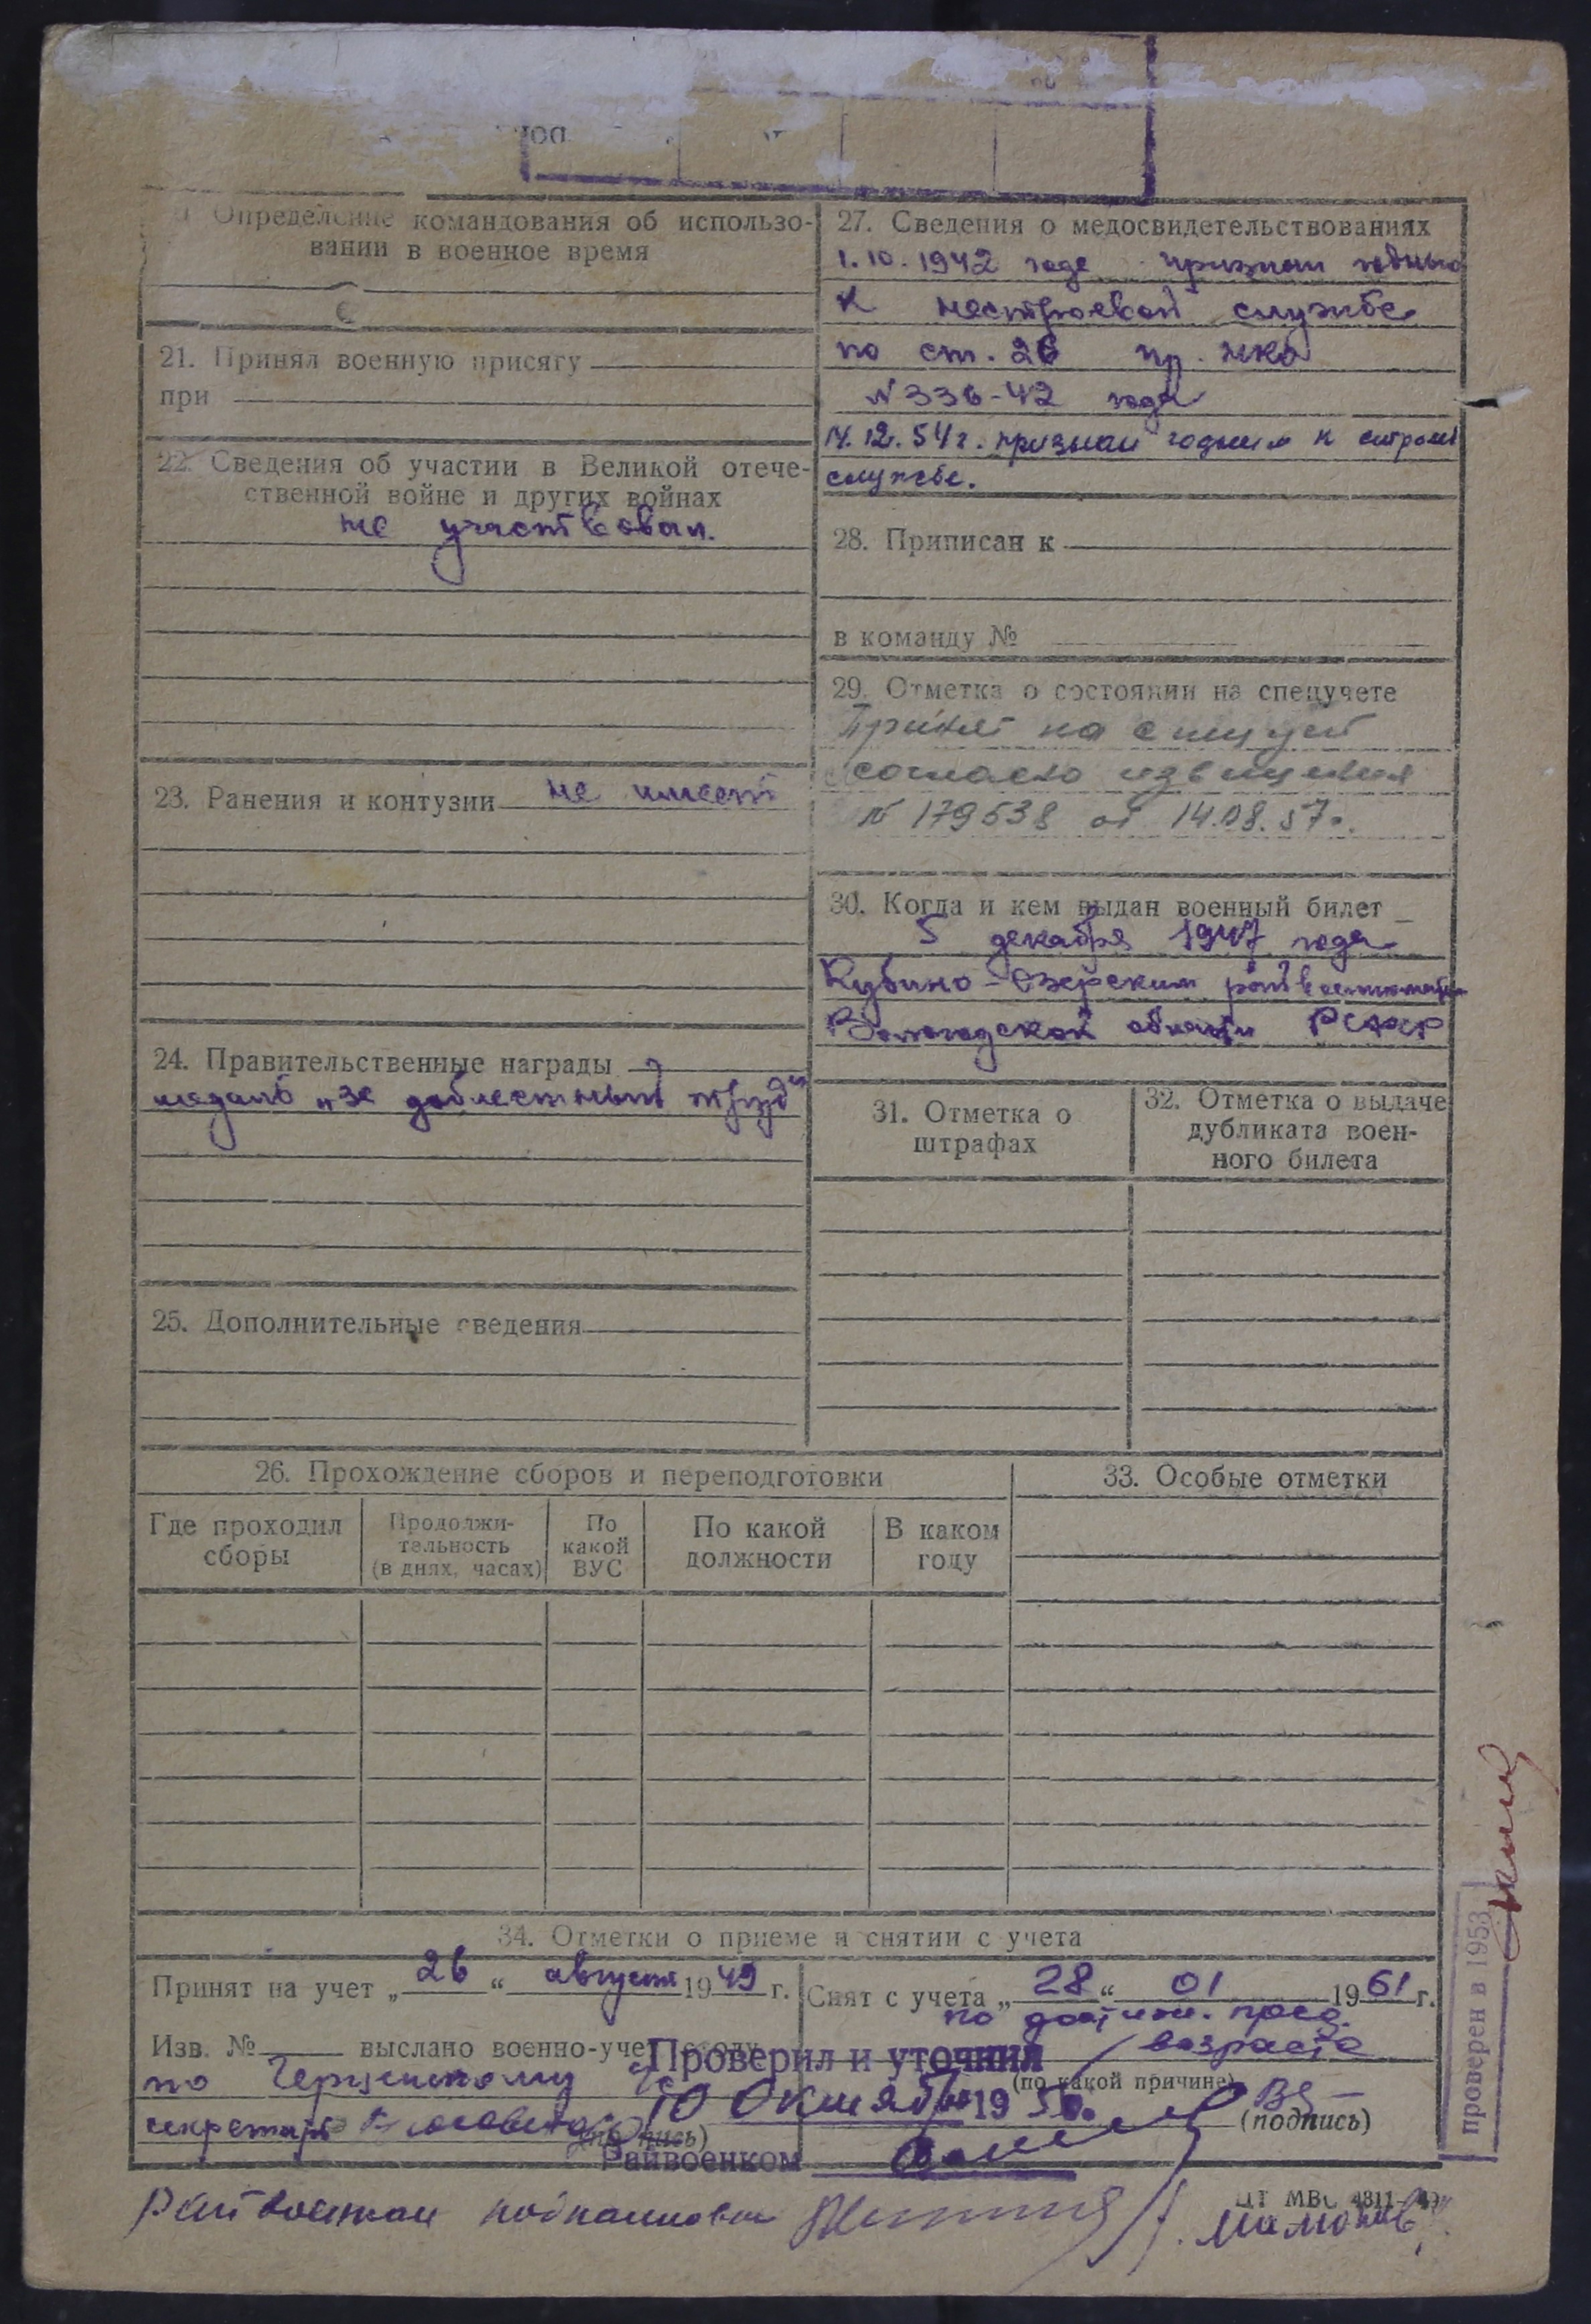 Определение командования об использо-
вании в военное время
21. Принял военную присягу
при
22. Сведения об участии в Великой отече-
ственной войне и других войнах
не участвовал.
23. Ранения и контузии не имеет
24. Правительственные награды
медаль „за доблестный труд"
25. Дополнительные сведения
27. Сведения о медосвидетельствованиях
1.10.1942 года признан годным
к нестроевой службе
по ст. 26 пр. НКО
№ 336-42 года
12.54 г. признан годным к строев
службе.
28. Приписан к
в команду №
29. Отметка о состоянии на спецучете
Принят на спецучет
согласно извещения
№ 179638 от 14.08.57г.
30. Когда и кем выдан военный билет
5 декабря 1947 года
Кубино-Озерским райвоенкоматом
Вологодской области РСФСР
31. Отметка о
штрафах
32. Отметка о выдаче
дубликата воен-
ного билета
26. Прохождение сборов и переподготовки
Где проходил
сборы
Продолжи-
тельность
(в днях, часах)
По
какой
ВУС
По какой
должности
В каком
году
33. Особые отметки
34. Отметки о приеме и снятии с учета
Принят на учет „26“ августа 1949 г.
Изв. № выслано военно-учет
по
секретарь
Снят с учета „28“ 01 1961 г.
по достиж. пред.
возраста
(по какой причине)
(подпись)
Проверил и уточнил
10 октября 1950.
Райвоенком
Райвоенком подполковник
/Мамонов/
ЦТ МВС 4811-49
проверен в 1953